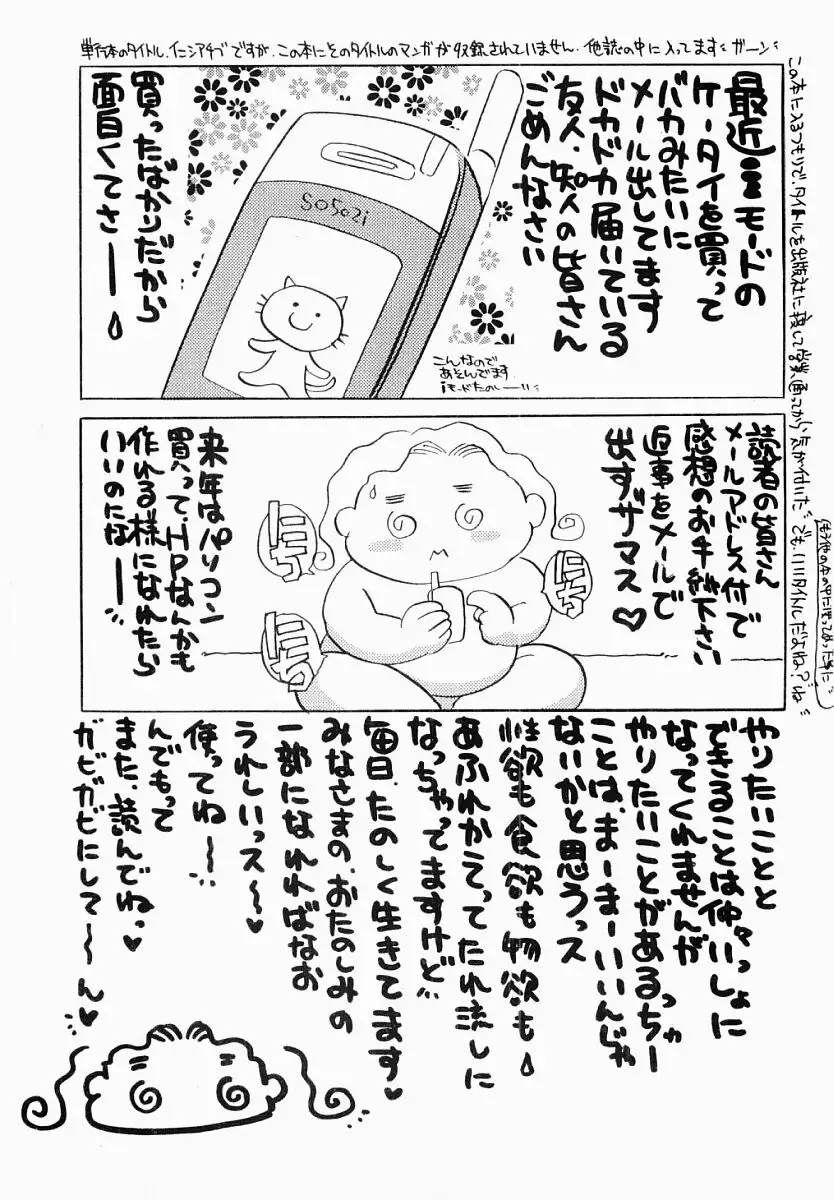 単行本のタイトル、イニシアチブですが、この本にそのタイトルのマンガが収録されていません。他誌の中に入ってます ガーン
この本に入るつもりで、タイトルを出版社に接して営業通ってから気が付いた でも、いいタイトルだよね?ね
最近iモードの
ケータイを買って
バカみたいに
メール出してます
ドカドカ届いている
友人、知人の皆さん
ごめんなさい
SO502i
買ったばかりだから
面白くてさーー
こんなので
あそんでます
iモードたのしーー
読者の皆さん
メールアドレス付で
感想のお手紙下さい
返事をメールで
出すザマス♡
にち
にち
にち
来年はパソコン
買って、HPなんかも
作れる様になれたら
いいのになーー
やりたいことと
できることは仲々いっしょに
なってくれませんが
やりたいことがあるっちゃー
ことは、まーまーいいんじゃ
ないかと思うっス
性欲も食欲も物欲も
あふれかえってたれ流しに
なっちゃってますけど
毎日、たのしく生きてます♥
みなさまの、おたのしみの
一部になれればなお
うれしいっス〜♥
使ってね〜
んでもって
また、読んでねっ♥
ガビガビにして〜ん♥